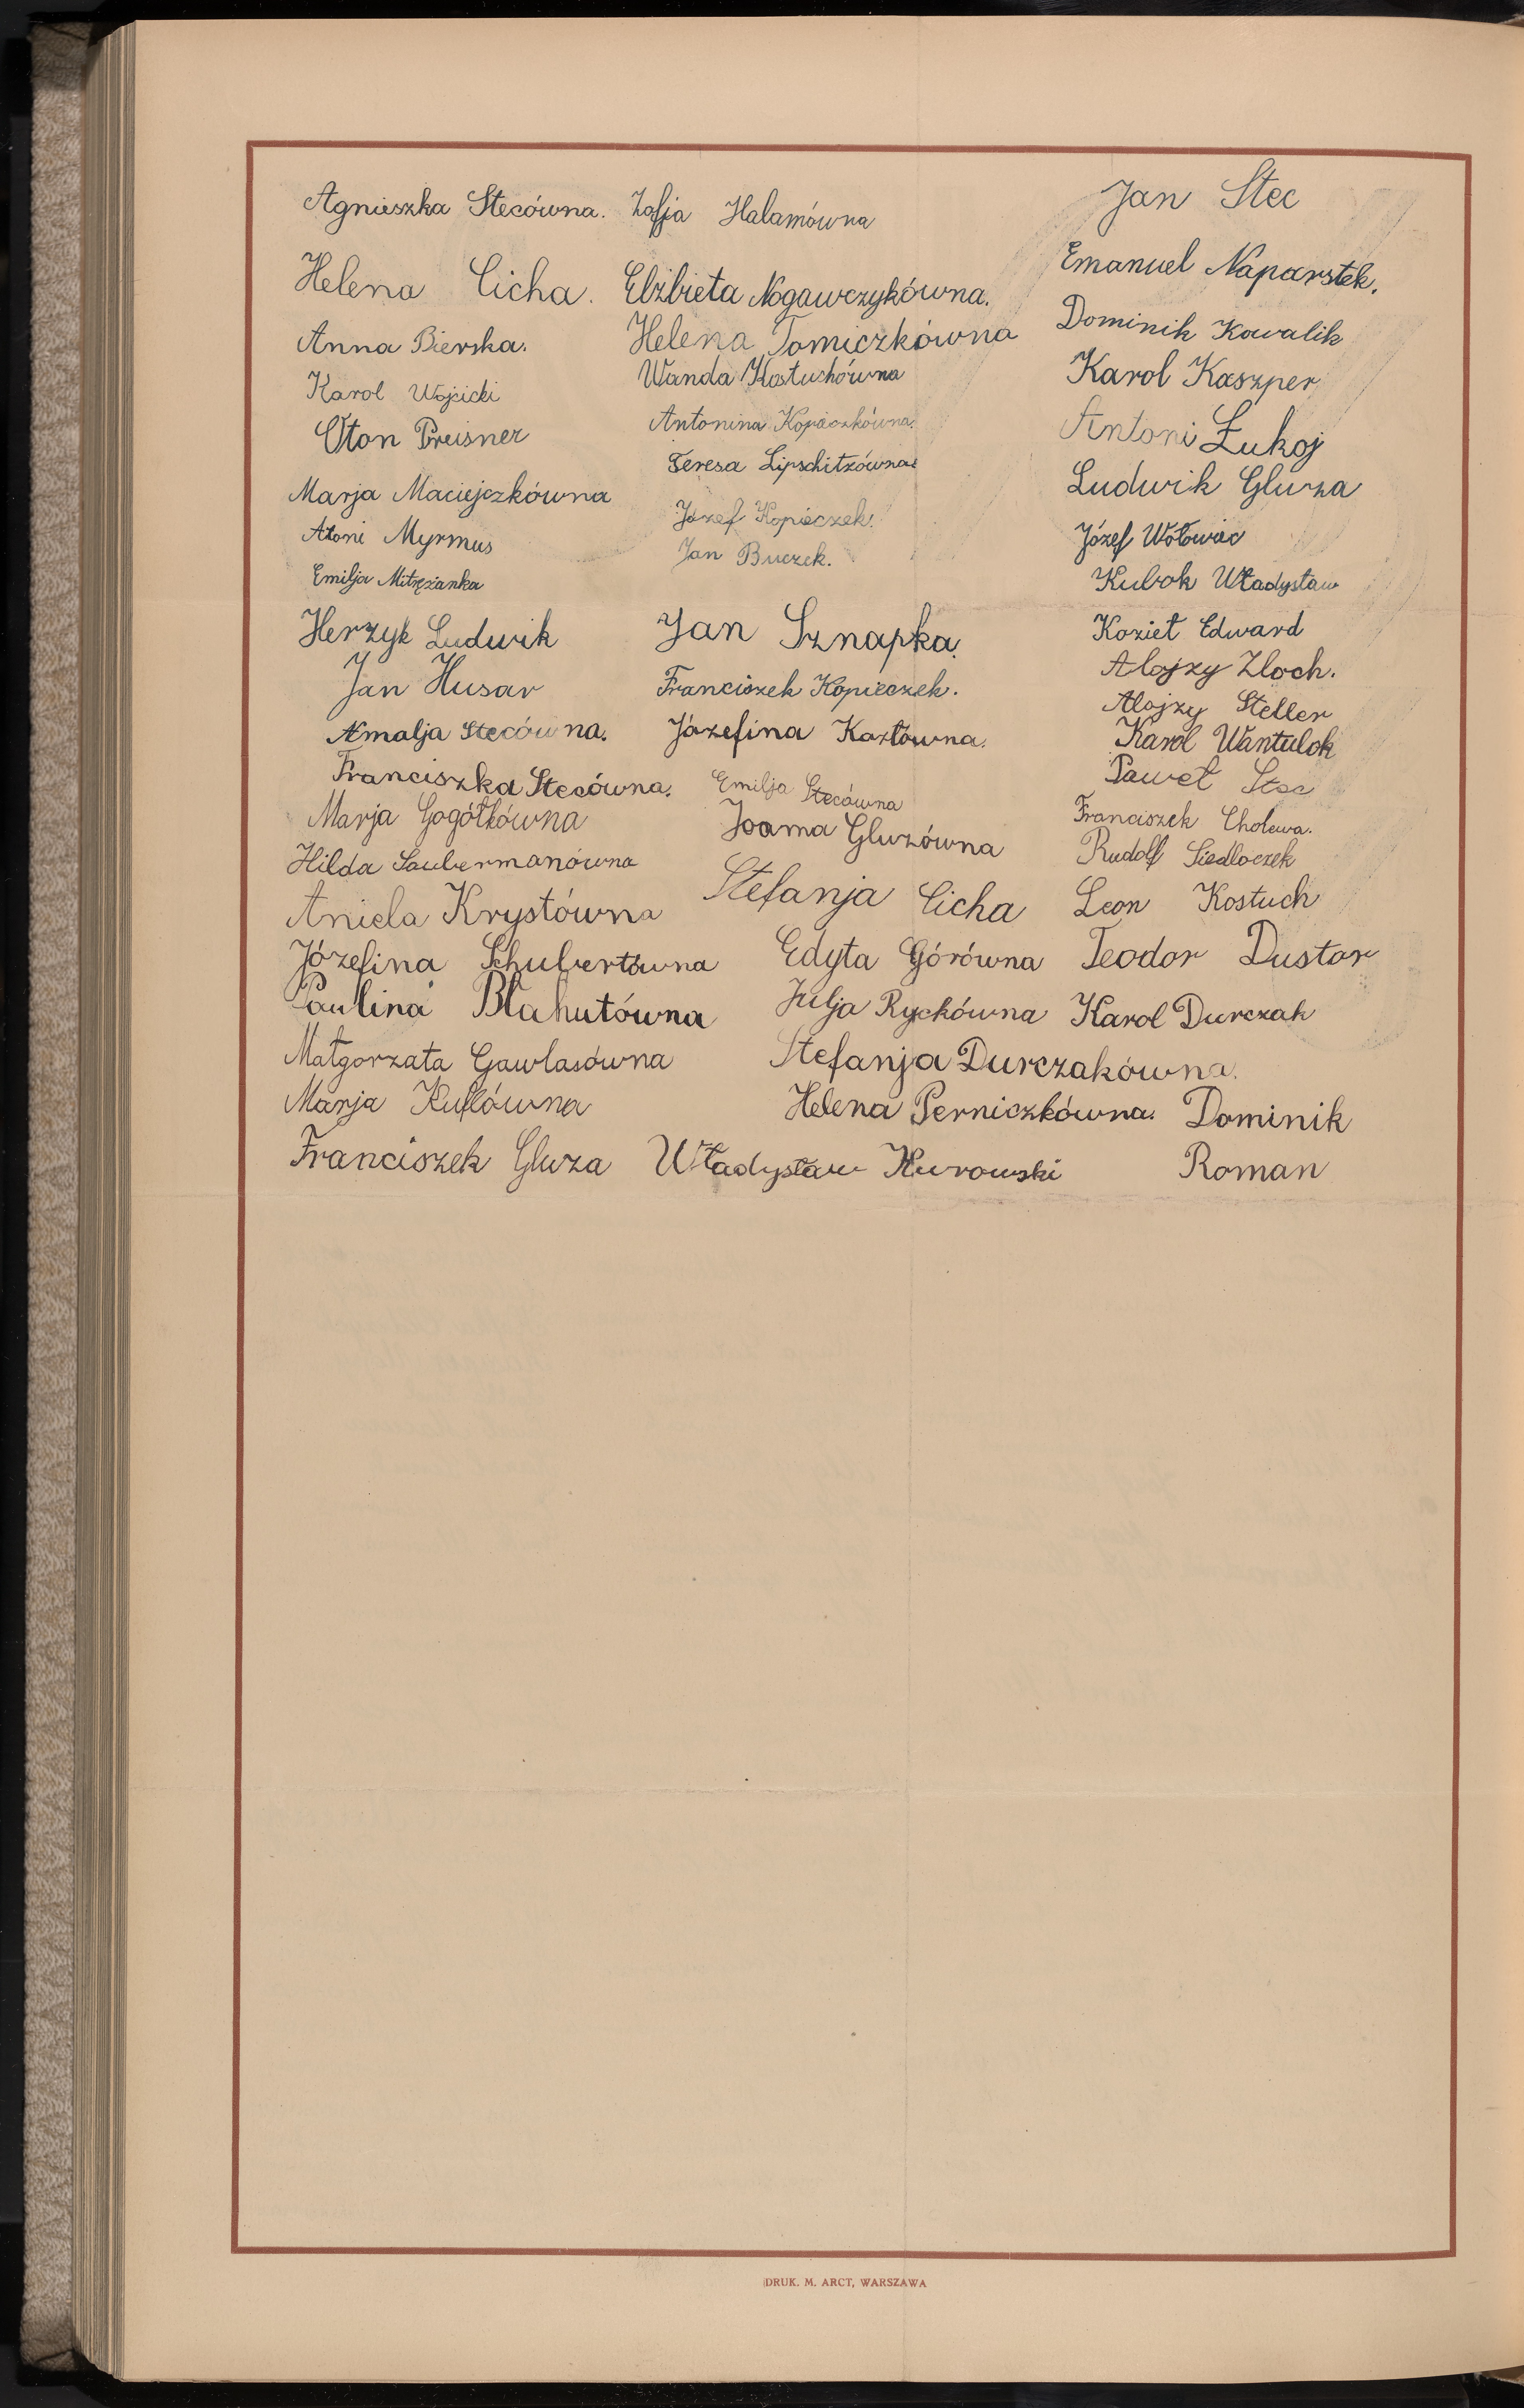 Agnieszka Stecówna.
Helena Cicha.
Anna Bierska.
Karol Wojcicki
Oton Preisner
Marja Maciejczkówna
Atoni Myrmus
Emilja Mitrężanka
Herzyk Ludwik
Jan Husar
Amalja Stecówna.
Franciszka Stecówna.
Marja Gogółkówna
Hilda Saubermanówna
Aniela Krystówna
Józefina Schubertówna
Paulina Błahutówna
Małgorzata Gawlasówna
Marja Kuflówna
Franciszek Gluza
Zofja Halamówna
Elżbieta Nogawczykówna.
Helena Tomiczkówna
Wanda Kostuchówna
Antonina Kopieczkówna.
Teresa Lipschitzówna
Józef Kopieczek.
Jan Buczek.
Jan Sznapka.
Franciszek Kopieczek.
Józefina Kozłówna.
Emilja Stecówna
Joama Gluzówna
Stefanja Cicha
Edyta Górówna
Julja Ryckówna
Stefanja Durczakówna.
Helena Perniczkówna.
Władysław Kurowski
Jan Stec
Emanuel Naparstek.
Dominik Kowalik
Karol Kaszper
Antoni Łukoj
Ludwik Gluza
Józef Wołowiec
Kubok Władysław
Kozieł Edward
Alojzy Zloch.
Alojzy Steller
Karol Wantulok
Paweł Stec
Franciszek Cholewa.
Rudolf Siedloczek
Leon Kostuch
Teodor Dustor
Karol Durczak
Dominik
Roman
DRUK. M. ARCT, WARSZAWA